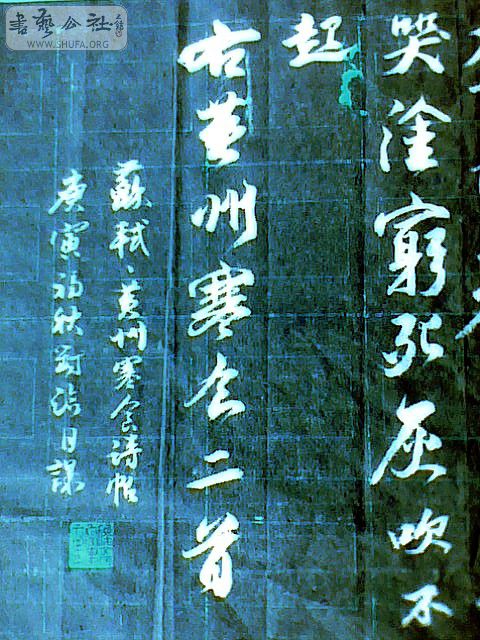 書藝公社
WWW.SHUFA.ORG
哭塗窮死灰吹不
起
右黄州寒食二首
蘇軾、黄州寒食詩帖
庚寅初秋對臨日課